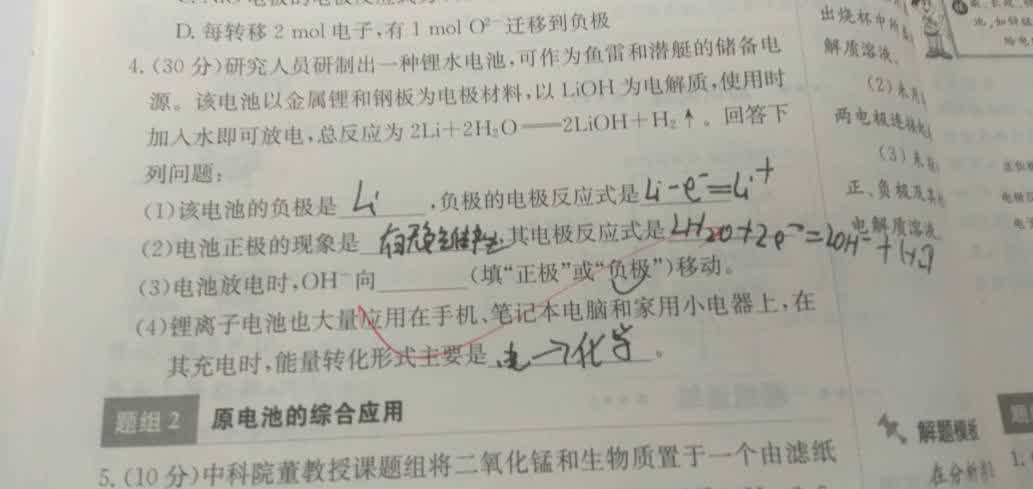 D. 每转移 2 mol 电子,有 1 mol O²⁻ 迁移到负极
4. (30 分)研究人员研制出一种锂水电池,可作为鱼雷和潜艇的储备电
源。该电池以金属锂和钢板为电极材料,以 LiOH 为电解质,使用时
加入水即可放电,总反应为 2Li+2H₂O══2LiOH+H₂↑。回答下
列问题:
(1)该电池的负极是 Li ,负极的电极反应式是 Li-e⁻=Li⁺
(2)电池正极的现象是 ,其电极反应式是 2H₂O+2e⁻=2OH⁻+H₂
(3)电池放电时,OH⁻向 (填“正极”或“负极”)移动。
(4)锂离子电池也大量应用在手机、笔记本电脑和家用小电器上,在
其充电时,能量转化形式主要是 电→化学 。
题组 2 原电池的综合应用
5. (10 分)中科院董教授课题组将二氧化锰和生物质置于一个由滤纸
出烧杯中所
解质溶液。
(2)
两电极连接
(3)
正、负极及
电解质溶液
解题模板
在分析